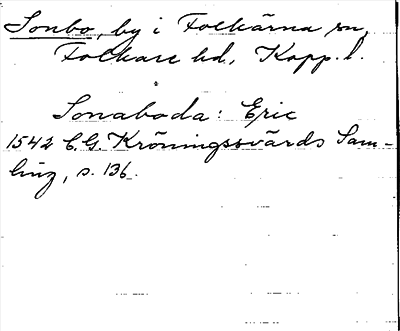 Sonbo, by i Folkärna sn,
Folkare hd, Kopp. l.
Sonaboda: Eric
1542 C.G. Kröningssvärds Sam-
ling, s. 136.